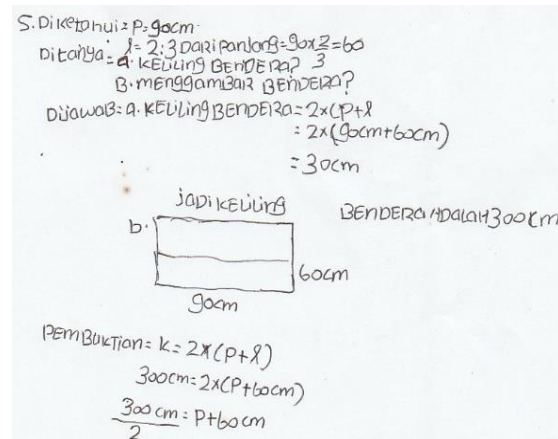 5. Diketahui = P = 90cm
l = 2:3 Dari Panjang = 90 x 2/3 = 60
Ditanya = a. KELiling BENDERA?
B. menggambar BENDERA?
Dijawab = a. KELiling BENDERA = 2x(P+l
= 2x(90cm+60cm)
= 30cm
jaDi KELiling BENDERA ADALAH 300cm
b.
60cm
90cm
PEMBUKTian = k = 2x(P+l)
300cm = 2x(P+60cm)
300cm/2 = P+60cm